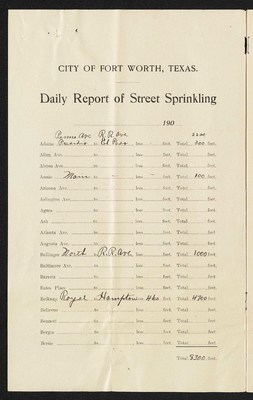 CITY OF FORT WORTH, TEXAS.
Daily Report of Street Sprinkling
190
Ave R.R. Ave.
Adams to El Paso less feet, Total feet.
Allen Ave. to less feet, Total feet.
Alston Ave. to less feet, Total feet.
Annie Main to less feet, Total 100 feet.
Arizona Ave. to less feet, Total feet.
Arlington Ave. to less feet, Total feet.
Agnes to less feet, Total feet.
Ash to less feet, Total feet.
to less feet, Total feet.
Augusta Ave. to less feet, Total feet.
Ballinger North to R.R. Ave. less feet, Total 1000 feet.
Baltimore Ave. to less feet, Total feet.
Barnett to less feet, Total feet.
Bates Place to less feet, Total feet.
Belknap Royal to Hampton less 460 feet, Total feet.
Bellevue to less feet, Total feet.
Bennett to less feet, Total feet.
to less feet, Total feet.
to less feet, Total feet.
Total, 8300 feet.